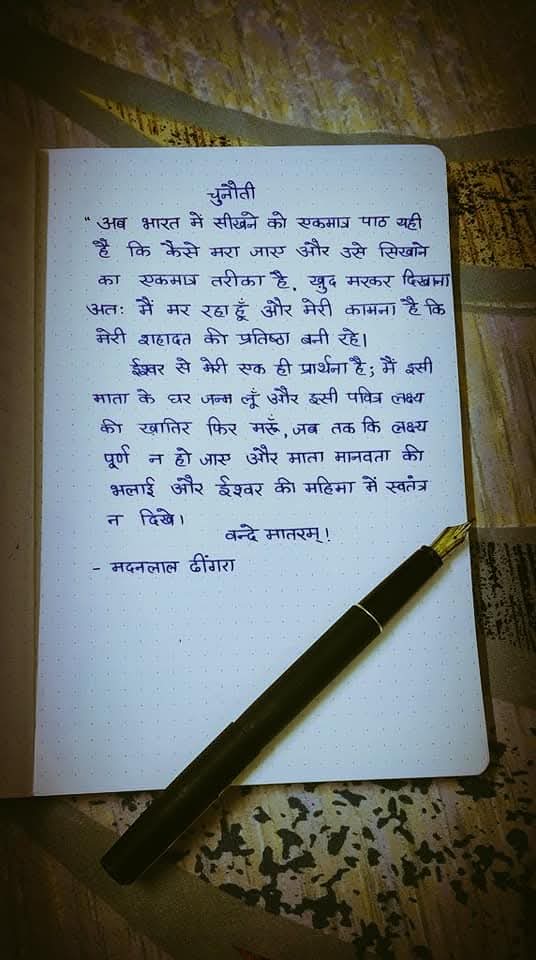 चुनौती
" अब भारत में सीखने को एकमात्र पाठ यही
है कि कैसे मरा जाए और उसे सिखाने
का एकमात्र तरीका है, खुद मरकर दिखाना
अतः मैं मर रहा हूँ और मेरी कामना है कि
मेरी शहादत की प्रतिष्ठा बनी रहे।
ईश्वर से मेरी एक ही प्रार्थना है; मैं इसी
माता के घर जन्म लूँ और इसी पवित्र लक्ष्य
की खातिर फिर मरूँ, जब तक कि लक्ष्य
पूर्ण न हो जाए और माता मानवता की
भलाई और ईश्वर की महिमा में स्वतंत्र
न दिखे।
वन्दे मातरम्!
- मदनलाल ढींगरा